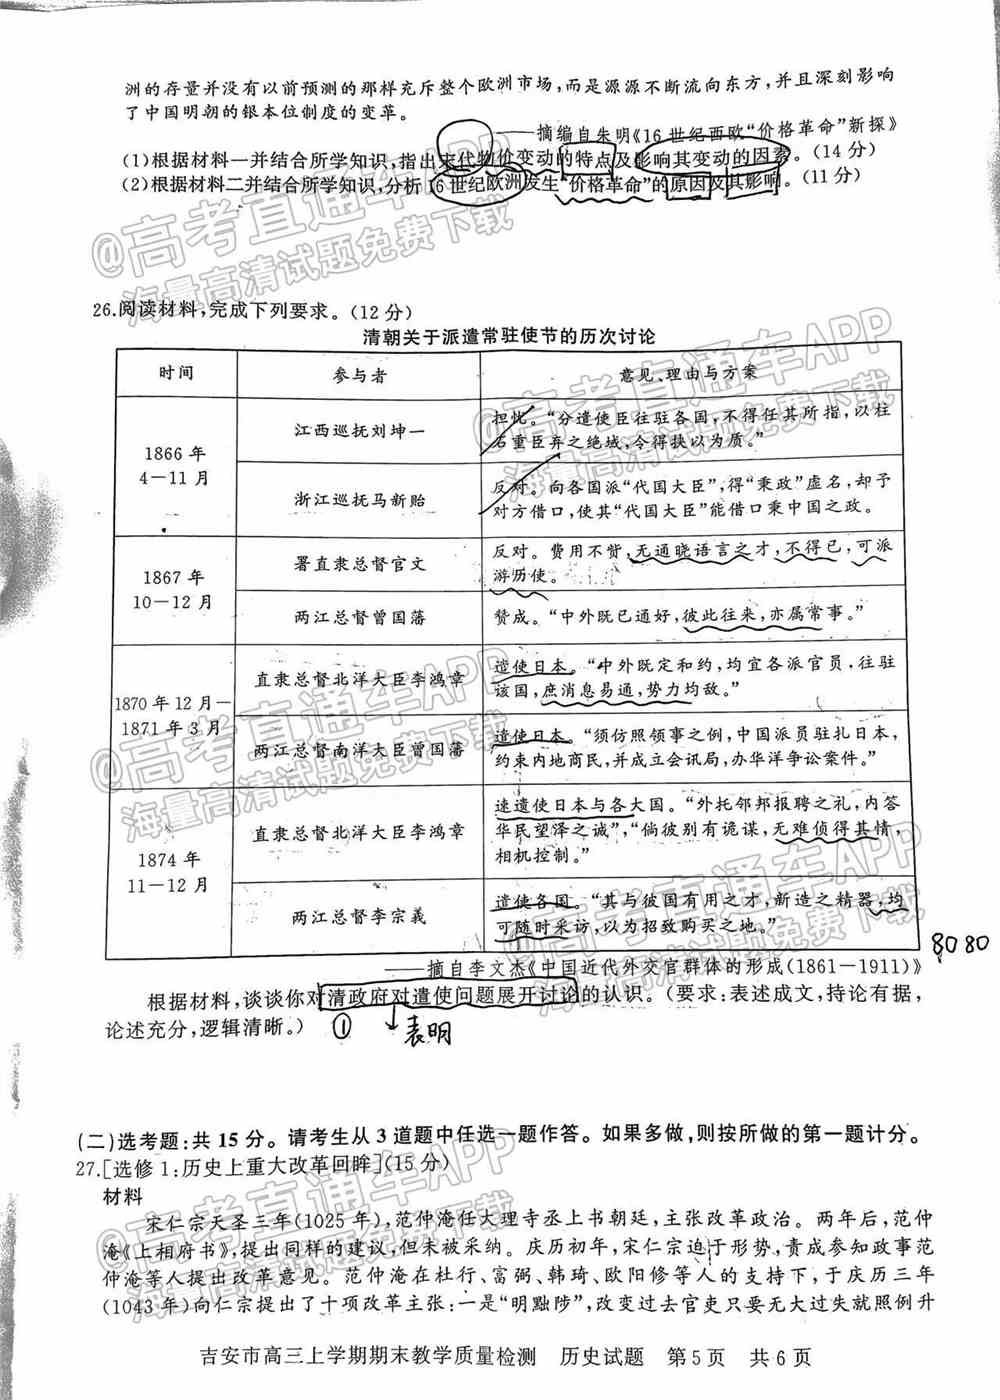 洲的存量并没有以前预测的那样充斥整个欧洲市场,而是源源不断流向东方,并且深刻影响
了中国明朝的银本位制度的变革。
——摘编自朱明《16世纪西欧“价格革命”新探》
(1)根据材料一并结合所学知识,指出宋代物价变动的特点及影响其变动的因素。(14分)
(2)根据材料二并结合所学知识,分析16世纪欧洲发生“价格革命”的原因及其影响。(11分)
@高考直通车APP
海量高清试题免费下载
26.阅读材料,完成下列要求。(12分)
清朝关于派遣常驻使节的历次讨论
时间 参与者 意见、理由与方案
@高考直通车APP
海量高清试题免费下载
1866年
4—11月
江西巡抚刘坤一
担忧。“分遣使臣往驻各国,不得任其所指,以柱
石重臣弃之绝域,令得挟以为质。”
浙江巡抚马新贻
反对。向各国派“代国大臣”,得“秉政”虚名,却予
对方借口,使其“代国大臣”能借口秉中国之政。
1867年
10—12月
署直隶总督官文
反对。费用不赀,无通晓语言之才,不得已,可派
游历使。
两江总督曾国藩
赞成。“中外既已通好,彼此往来,亦属常事。”
1870年12月—
1871年3月
直隶总督北洋大臣李鸿章
遣使日本。“中外既定和约,均宜各派官员,往驻
该国,庶消息易通,势力均敌。”
两江总督南洋大臣曾国藩
遣使日本。“须仿照领事之例,中国派员驻扎日本,
约束内地商民,并成立会讯局,办华洋争讼案件。”
@高考直通车APP
海量高清试题免费下载
1874年
11—12月
直隶总督北洋大臣李鸿章
速遣使日本与各大国。“外托邻邦报聘之礼,内答
华民望泽之诚”,“倘彼别有诡谋,无难侦得其情,
相机控制。”
两江总督李宗羲
遣使各国。“其与彼国有用之才,新造之精器,均
可随时采访,以为招致购买之地。”
@高考直通车APP
海量高清试题免费下载
8080
——摘自李文杰《中国近代外交官群体的形成(1861—1911)》
根据材料,谈谈你对清政府对遣使问题展开讨论的认识。(要求:表述成文,持论有据,
论述充分,逻辑清晰。)
① 表明
(二)选考题:共15分。请考生从3道题中任选一题作答。如果多做,则按所做的第一题计分。
27.[选修1:历史上重大改革回眸](15分)
材料
@高考直通车APP
海量高清试题免费下载
@高考直通车APP
海量高清试题免费下载
宋仁宗天圣三年(1025年),范仲淹任大理寺丞上书朝廷,主张改革政治。两年后,范仲
淹《上相府书》,提出同样的建议,但未被采纳。庆历初年,宋仁宗迫于形势,责成参知政事范
仲淹等人提出改革意见。范仲淹在杜衍、富弼、韩琦、欧阳修等人的支持下,于庆历三年
(1043年)向仁宗提出了十项改革主张:一是“明黜陟”,改变过去官吏只要无大过失就照例升
吉安市高三上学期期末教学质量检测 历史试题 第5页 共6页